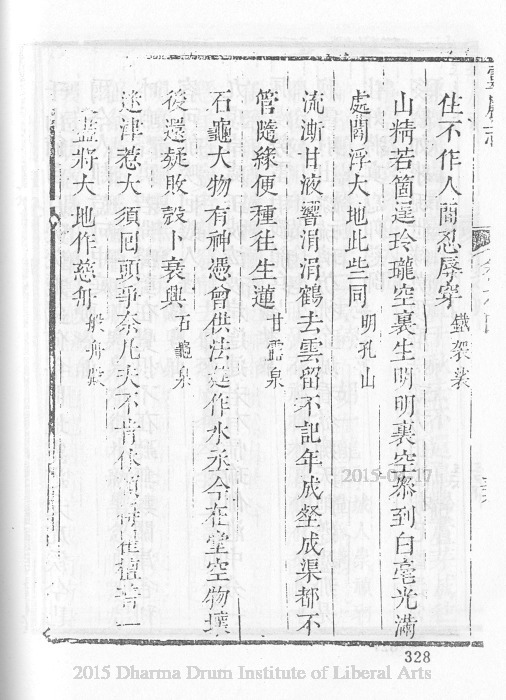 住不作人間忍辱穿 鐵袈裟
山精若箇逞玲瓏空裏生明明裏空叅到白毫光滿
處閻浮大地此些同 明孔山
流澌甘液響涓涓鶴去雲留不記年成壑成渠都不
管隨緣便種往生蓮 甘露泉
石龜大物有神憑曾供法筵作水丞今在堂空物壞
後還疑敗殼卜衰興 石龜泉
迷津惹大須囘頭爭奈凡夫不肯休願
盡將大地作慈舟 般舟殿
328
2015 Dharma Drum Institute of Liberal Arts